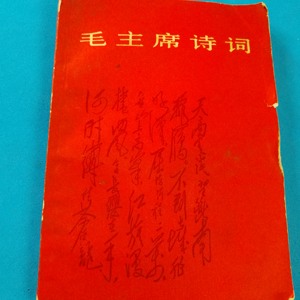 毛主席诗词
天高云淡望断南
飞雁不到长城非
好汉屈指行程二万
六盘山上高峰红旗漫
卷西风今日长缨在手
何时缚住苍龙